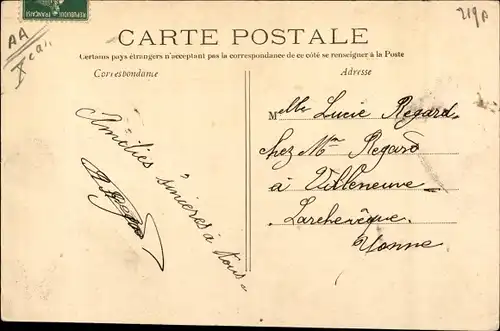 RÉPUBLIQUE FRANÇAISE
219A
AA
CARTE POSTALE
Certains pays étrangers n'acceptant pas la correspondance de ce côté se renseigner à la Poste
Correspondance
Adresse
Amitiés sincères à tous
Melle Lucie Regard
chez Mr Regard
à Villeneuve
Larchevêque
Yonne